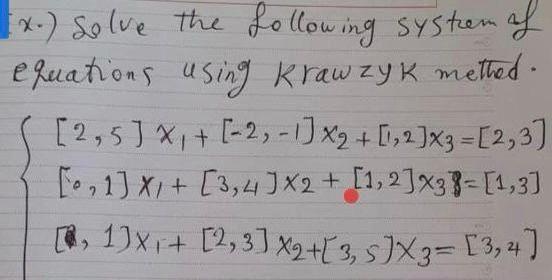 Ex.) Solve the following system of
equations using Krawzyk method.
[2,5] x₁ + [-2,-1] x₂ + [1,2] x₃ = [2,3]
[0,1] x₁ + [3,4] x₂ + [1,2] x₃ = [1,3]
[0,1] x₁ + [2,3] x₂ + [3,5] x₃ = [3,4]